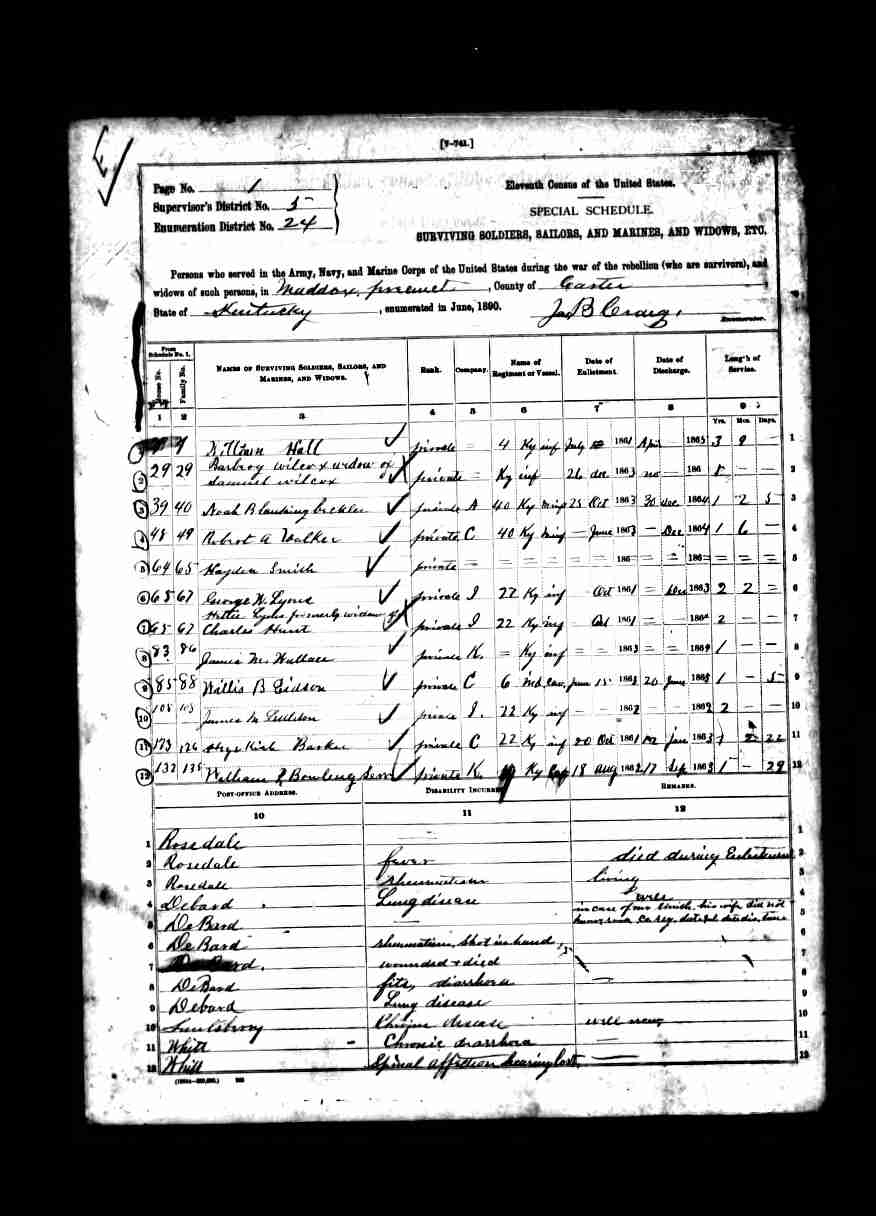 [7-741.]
Page No. 1
Supervisor's District No. 5
Enumeration District No. 24
Eleventh Census of the United States.
SPECIAL SCHEDULE.
SURVIVING SOLDIERS, SAILORS, AND MARINES, AND WIDOWS, ETC.
Persons who served in the Army, Navy, and Marine Corps of the United States during the war of the rebellion (who are survivors), and
widows of such persons, in Maddox precinct, County of Carter,
State of Kentucky, enumerated in June, 1890. Jas B Craig, Enumerator.
From Schedule No. 1.
House No. Family No. NAMES OF SURVIVING SOLDIERS, SAILORS, AND MARINES, AND WIDOWS. Rank. Company. Name of Regiment or Vessel. Date of Enlistment. Date of Discharge. Length of Service.
1 2 3 4 5 6 7 8 9
Yrs. Mos. Days.
1 Hall private = 4 Ky inf July 1861 Apr 1865 3 9 – 1
2 29 29 Barbroy wilcox widow of
Samuel wilcox private – Ky inf 26 dec 1863 no – 186 – – 2
3 39 40 Noah Blankingbeckler private A 40 Ky 25 Oct 1863 30 dec 1864 1 2 5 3
4 48 49 Robert A Walker private C 40 Ky – June 1863 – Dec 1864 1 6 – 4
5 64 65 Hayden Smith private = = = = = 186 = = 186 = = = = 5
6 65 67 George W. Lyons private I 22 Ky inf Oct 1861 = Dec 1863 2 2 = 6
7 65 67 Hettie Lyons formerly widow of
Charles Hunt private I 22 Ky inf – Oct 1861 – – 186 2 – 7
8 83 86 James M Wallace private K. = Ky inf = = 1863 = = 1864 1 – – 8
9 85 88 Willis B Eidson private C 6 Ind. Cav. June 15 1863 20 June 1865 1 – 5 9
10 James M 22 Ky inf – – 1862 – – 1862 2 – 10
11 173 176 Barker private C 22 Ky inf 20 Oct 1861 Jan 1863 1 2 22 11
12 William Bowling Senr private K. Ky 18 Aug 1862 17 Sep 1863 1 – 29 12
POST-OFFICE ADDRESS. DISABILITY INCURRED. REMARKS.
10 11 12
1 Rosedale 1
2 Rosedale fever died during Enlistment 2
3 Rosedale rheumatism living 3
4 Debard Lung disease well 4
5 DeBard in care of his wife did not 5
6 DeBard rheumatism, shot in hand 6
7 wounded + died 7
8 DeBard fits, diarrhoea – 8
9 Debard Lung disease 9
10 disease well now 10
11 Whitt Chronic diarrhoea 11
12 Whitt Spinal affection hearing lost. 12